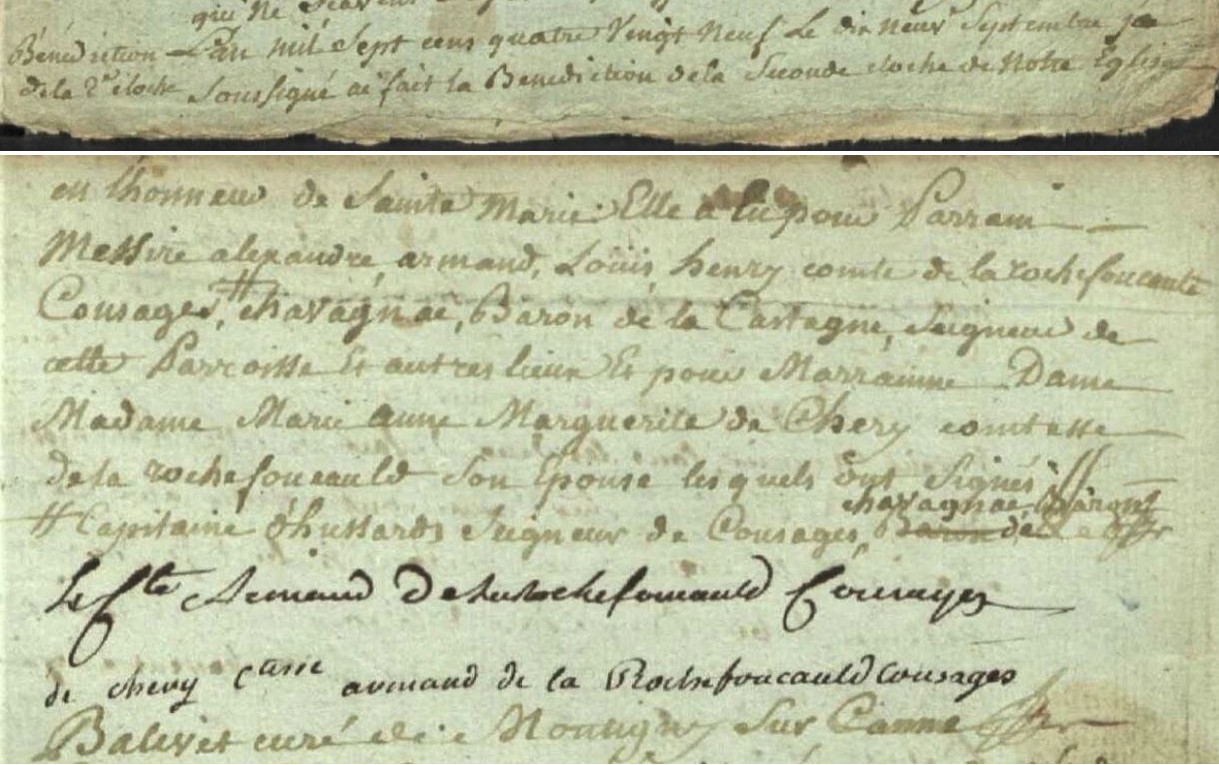 qui ne
Bénédiction L'an mil sept cens quatre Vingt Neuf Le dix neuf Septembre je
de la 2.de cloche Soussigné ai fait la Benediction de la Seconde cloche de Notre Eglise
en lhonneur de Sainte Marie Elle a eu pour Parrain
Messire alexandre, armand, Louis, henry comte de la rochefoucault
Cousages, # chavagnac, Baron de la Cartagne, Seigneur de
cette Parroisse Et autres lieux Et pour Marrainne Dame
Madame Marie anne Marguerite de Chery comtesse
de la rochefoucauld son Epouse lesquels ont signés
chavagnac,
# Capitaine d'hussards Seigneur de Cousages, Baron de
Le Cte Armand De La Rochefoucauld Cousages
de chery armand de la Rochefoucauld Cousages
Balivet curé de Montigny Sur Canne